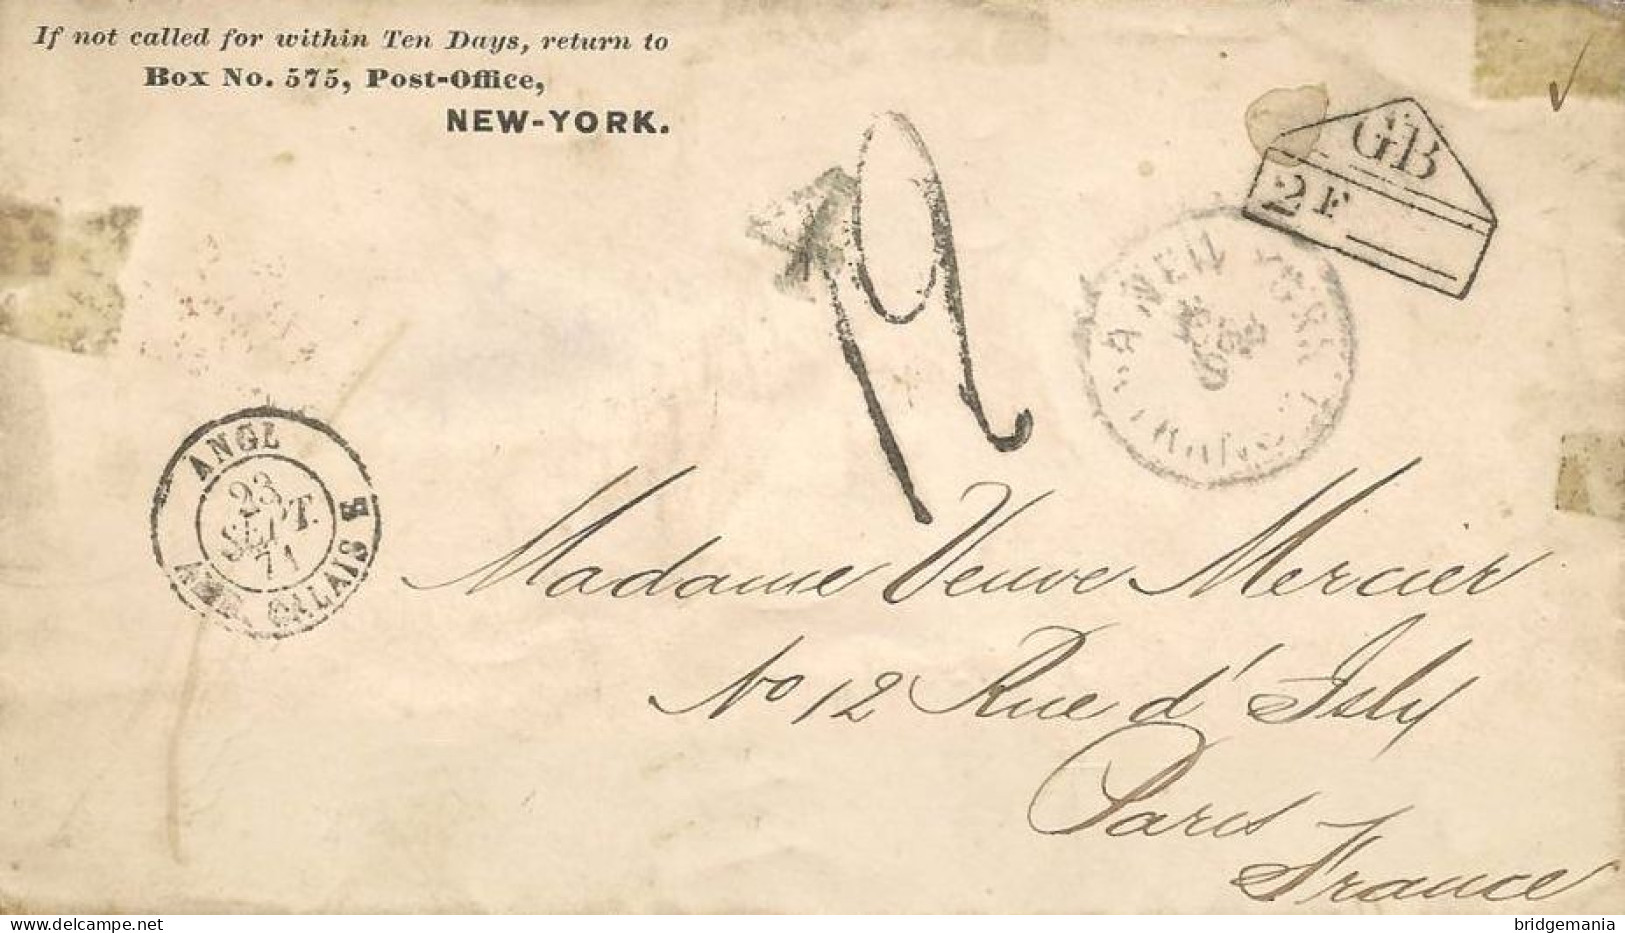 If not called for within Ten Days, return to
Box No. 575, Post-Office,
NEW-YORK.
GB
2F
NEW YORK
ANGL
23
SEPT.
71
AMB. CALAIS E
Madame Veuve Mercier
No 12 Rue d'Isly
Paris
France
bridgemania